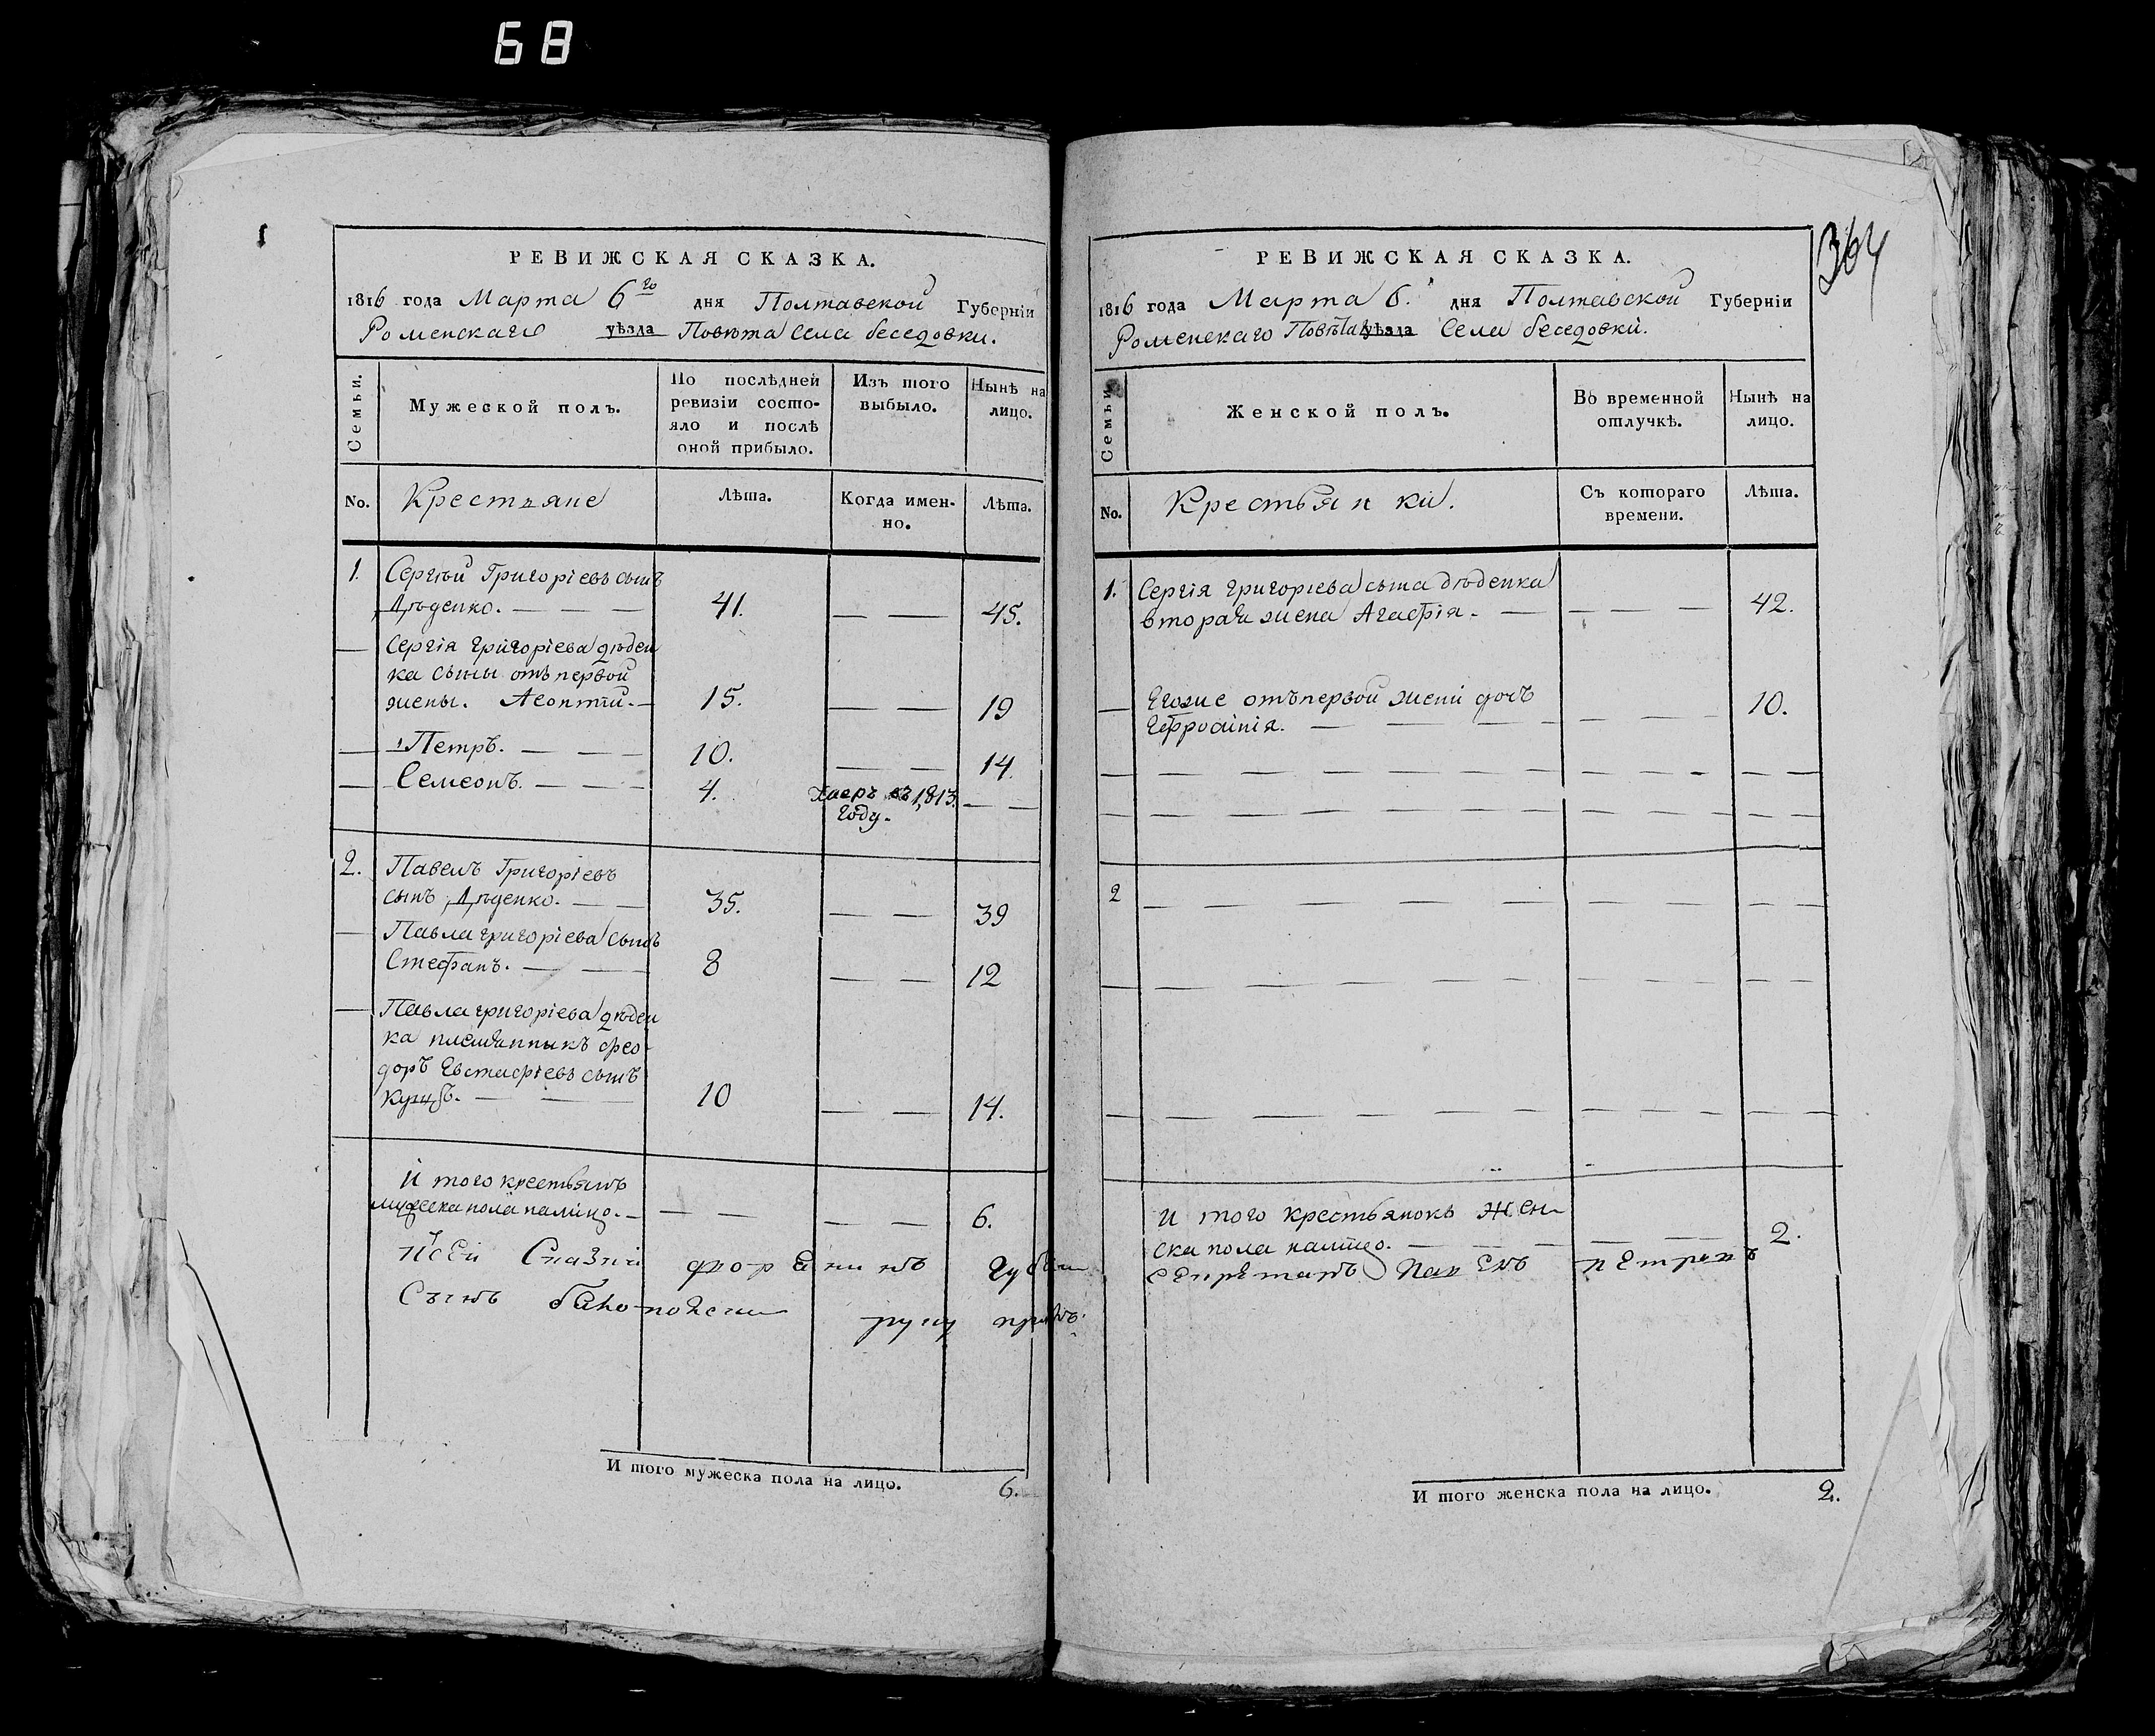 68
РЕВИЖСКАЯ СКАЗКА.
1816 года Марта 6го дня Полтавской Губерніи
Роменскаго уѣзда Повѣта Села беседовки.
Семьи.
Мужеской полъ.
По послѣдней
ревизіи состо-
яло и послѣ
оной прибыло.
Изъ того
выбыло.
Нынѣ на
лицо.
No.
Крестъяне
Лѣта.
Когда имен-
но.
Лѣта.
1. Сергѣй Григоріевъ сынъ
Дѣденко. 41. 45.
Сергія григоріева дѣден
ка сыны отъ первой
жены. Леонтій. 15. 19
Петръ. 10. 14.
Семеонъ. 4. въ 1813.
году.
2. Павелъ Григоріевъ
сынъ Дѣденко. 35. 39
Павла григоріева сынъ
Стефанъ. 8 12
Павла григоріева дѣден
ка племянникъ фео-
доръ Евстафіевъ сынъ
10 14.
И того крестьянъ
мужеска пола налицо. 6.
Сынъ руку
И того мужеска пола на лицо. 6.
364
РЕВИЖСКАЯ СКАЗКА.
1816 года Марта 6. дня Полтавской Губерніи
Роменскаго Повѣта уѣзда Села беседовки.
Семьи
Женской полъ.
Во временной
отлучкѣ.
Нынѣ на
лицо.
No.
Крестьянки.
Съ котораго
времени.
Лѣта.
1. Сергія григоріева сына дѣденка
вторая жена Агафія. 42.
Егоже отъ первой жени дочъ
Ефросинія. 10.
2
И того крестьянокъ жен
ска пола налицо. 2.
И того женска пола на лицо. 2.